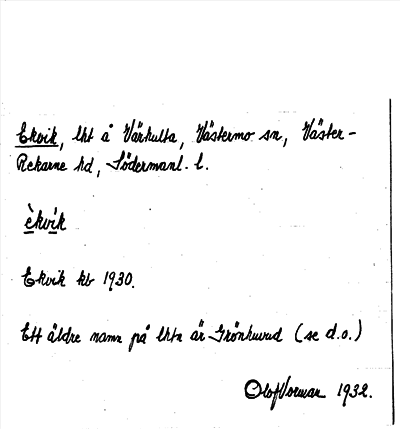 Ekvik, lht å Värhulta, Västermo sn, Väster-
Rekarne hd, Södermanl. l.
èkvik
Ekvik kb 1930.
Ett äldre namn på lhtn är Grönhuvud (se d.o.)
Olof Vorman 1932.